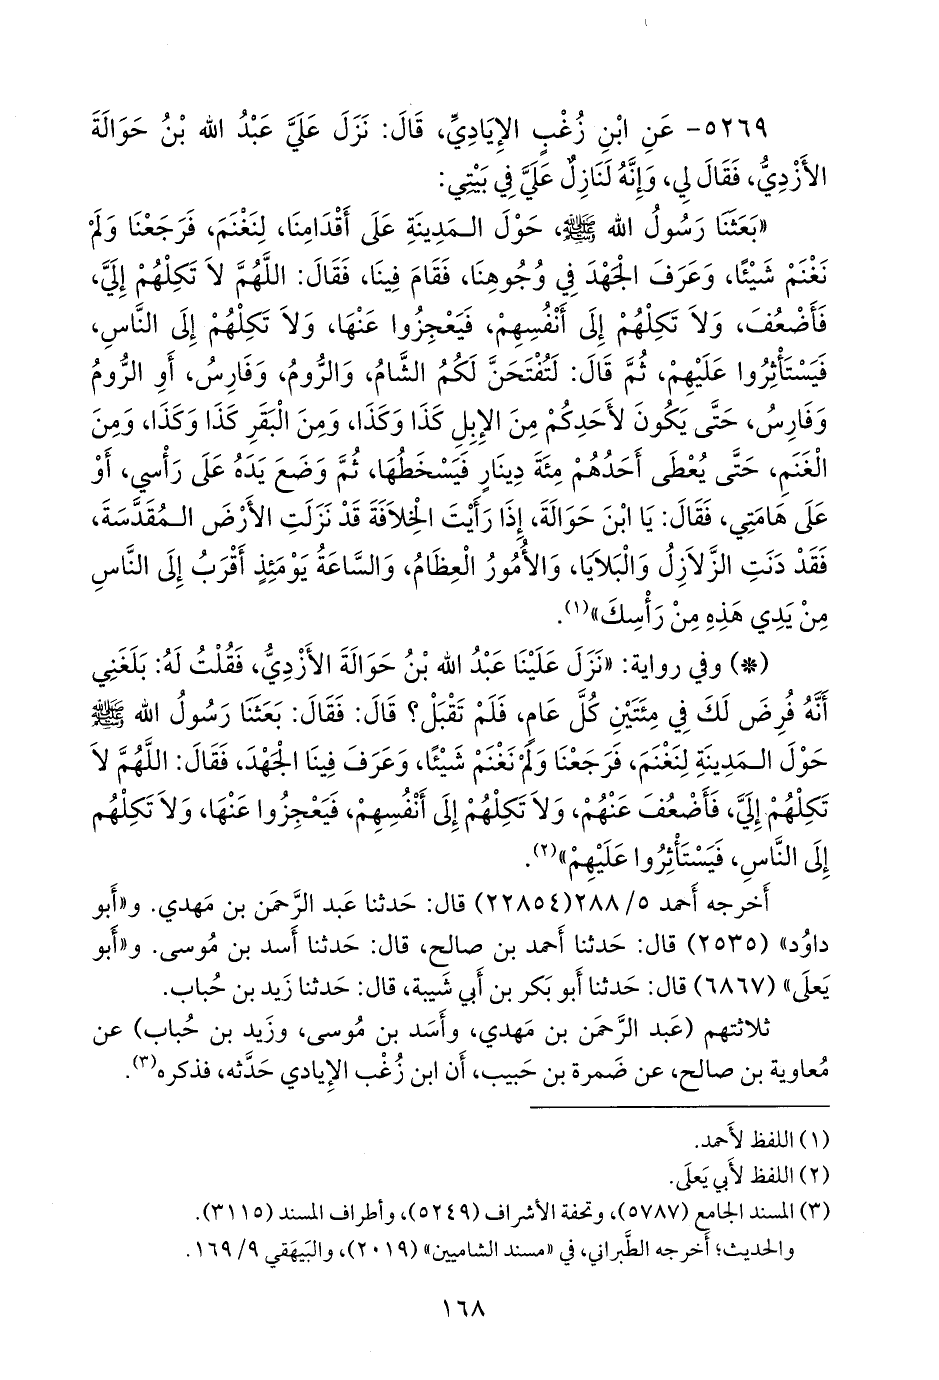 ٥٢٦٩- عَنِ ابْنِ زُغْبٍ الإِيَادِيِّ، قَالَ: نَزَلَ عَلَيَّ عَبْدُ الله بْنُ حَوَالَةَ
الأَزْدِيُّ، فَقَالَ لِي، وَإِنَّهُ لَنَازِلٌ عَلَيَّ فِي بَيْتِي:
«بَعَثَنَا رَسُولُ الله ﷺ، حَوْلَ الـمَدِينَةِ عَلَى أَقْدَامِنَا، لِنَغْنَمَ، فَرَجَعْنَا وَلَمْ
نَغْنَمْ شَيْئًا، وَعَرَفَ الْجَهْدَ فِي وُجُوهِنَا، فَقَامَ فِينَا، فَقَالَ: اللَّهُمَّ لاَ تَكِلْهُمْ إِلَيَّ،
فَأَضْعُفَ، وَلاَ تَكِلْهُمْ إِلَى أَنْفُسِهِمْ، فَيَعْجِزُوا عَنْهَا، وَلاَ تَكِلْهُمْ إِلَى النَّاسِ،
فَيَسْتَأْثِرُوا عَلَيْهِمْ، ثُمَّ قَالَ: لَتُفْتَحَنَّ لَكُمُ الشَّامُ، وَالرُّومُ، وَفَارِسُ، أَوِ الرُّومُ
وَفَارِسُ، حَتَّى يَكُونَ لأَحَدِكُمْ مِنَ الإِبِلِ كَذَا وَكَذَا، وَمِنَ الْبَقَرِ كَذَا وَكَذَا، وَمِنَ
الْغَنَمِ، حَتَّى يُعْطَى أَحَدُهُمْ مِئَةَ دِينَارٍ فَيَسْخَطُهَا، ثُمَّ وَضَعَ يَدَهُ عَلَى رَأْسِي، أَوْ
عَلَى هَامَتِي، فَقَالَ: يَا ابْنَ حَوَالَةَ، إِذَا رَأَيْتَ الْخِلاَفَةَ قَدْ نَزَلَتِ الأَرْضَ الـمُقَدَّسَةَ،
فَقَدْ دَنَتِ الزَّلاَزِلُ وَالْبَلاَيَا، وَالأُمُورُ الْعِظَامُ، وَالسَّاعَةُ يَوْمَئِذٍ أَقْرَبُ إِلَى النَّاسِ
مِنْ يَدِي هَذِهِ مِنْ رَأْسِكَ»(١).
(*) وفي رواية: «نَزَلَ عَلَيْنَا عَبْدُ الله بْنُ حَوَالَةَ الأَزْدِيُّ، فَقُلْتُ لَهُ: بَلَغَنِي
أَنَّهُ فُرِضَ لَكَ فِي مِئَتَيْنِ كُلَّ عَامٍ، فَلَمْ تَقْبَلْ؟ قَالَ: فَقَالَ: بَعَثَنَا رَسُولُ الله ﷺ
حَوْلَ الـمَدِينَةِ لِنَغْنَمَ، فَرَجَعْنَا وَلَمْ نَغْنَمْ شَيْئًا، وَعَرَفَ فِينَا الْجَهْدَ، فَقَالَ: اللَّهُمَّ لاَ
تَكِلْهُمْ إِلَيَّ، فَأَضْعُفَ عَنْهُمْ، وَلاَ تَكِلْهُمْ إِلَى أَنْفُسِهِمْ، فَيَعْجِزُوا عَنْهَا، وَلاَ تَكِلْهُم
إِلَى النَّاسِ، فَيَسْتَأْثِرُوا عَلَيْهِمْ»(٢).
أخرجه أحمد ٥/ ٢٨٨(٢٢٨٥٤) قال: حَدثنا عَبد الرَّحمَن بن مَهدي. و«أَبو
داوُد» (٢٥٣٥) قال: حَدثنا أَحمد بن صالح، قال: حَدثنا أَسد بن مُوسى. و«أَبو
يَعلَى» (٦٨٦٧) قال: حَدثنا أَبو بَكر بن أَبي شَيبة، قال: حَدثنا زَيد بن حُباب.
ثلاثتهم (عَبد الرَّحمَن بن مَهدي، وأَسَد بن مُوسى، وزَيد بن حُباب) عن
مُعاوية بن صالح، عن ضَمرة بن حَبيب، أَن ابن زُغْب الإِيادي حَدَّثه، فذكره(٣).
(١) اللفظ لأَحمد.
(٢) اللفظ لأَبي يَعلَى.
(٣) المسند الجامع (٥٧٨٧)، وتحفة الأشراف (٥٢٤٩)، وأطراف المسند (٣١١٥).
والحديث؛ أَخرجه الطَّبراني، في «مسند الشاميين» (٢٠١٩)، والبَيهَقي ٩/ ١٦٩.
١٦٨